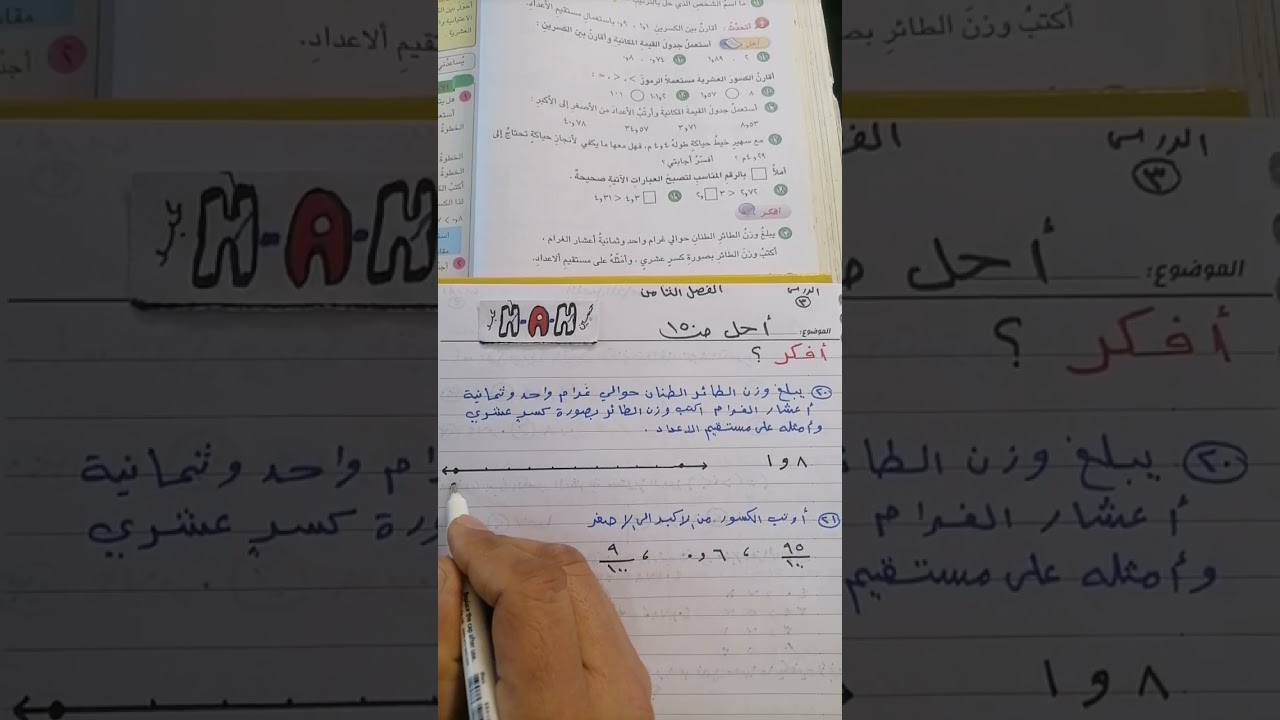 ما اسم الشخص الذي حل بالترتيب
أتحدّثُ : أقارنُ بين الكسرين ٠٫١ ، ٠٫٩ باستعمال مستقيم الأعداد.
أحل
أستعملُ جدولَ القيمةِ المكانيةِ وأقارنُ بين الكسرين :
١٫٨٩ ٢
٠٫٨ ٠٫٧٤
أقارنُ الكسورَ العشرية مستعملاً الرموزَ > ، < ، = :
١٫٥٧ ٨
١٠١ ١٠١٫٢
أستعملُ جدولَ القيمة المكانية وأرتّبُ الأعدادَ من الأصغر إلى الأكبر :
٨٫٥٣ ٣٫٧١ ٣٤٫٥٧ ٤٠٫٧٨
مع سهير خيطُ حياكةٍ طولهُ ٤٫٤ م، فهل معها ما يكفي لأنجازِ حياكةٍ تحتاجُ إلى
٤٫٢٩ م ؟ أفسّرُ أجابتي ؟
أملأُ □ بالرقم المناسب لتصبحَ العبارات الآتية صحيحةً .
١٨ ٢٫٧٢ > ٢٫□٣
١٩ ٤٫٣□ < ٤٫٣١
أفكر
٢٠ يبلغُ وزنُ الطائرِ الطنان حوالي غرام واحد وثمانيةُ أعشار الغرام ،
أكتبُ وزنَ الطائرِ بصورة كسرٍ عشري ، وأمثلهُ على مستقيم ألاعداد.
الدرس ٣
الفصل الثامن
H-A-H
الموضوع: أحل ص١٥
أفكر ؟
٢٠ يبلغ وزن الطائر الطنان حوالي غرام واحد وثمانية
أعشار الغرام أكتب وزن الطائر بصورة كسر عشري
وأمثله على مستقيم الاعداد .
٨ و ١
٢١ أرتب الكسور من الاكبر الى الاصغر
٩٥/١٠٠ ، ٦ و ٠ ، ٩/١٠٠